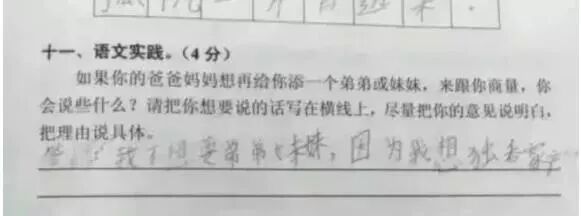 十一、语文实践。(4分)
如果你的爸爸妈妈想再给你添一个弟弟或妹妹,来跟你商量,你
会说些什么?请把你想要说的话写在横线上,尽量把你的意见说明白,
把理由说具体。
我不想要弟弟妹妹,因为我想独吞家产